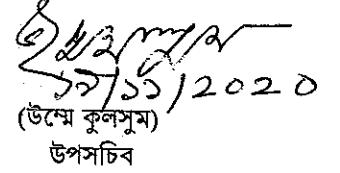 ১৯/১১/2020
(উম্মে কুলসুম)
উপসচিব